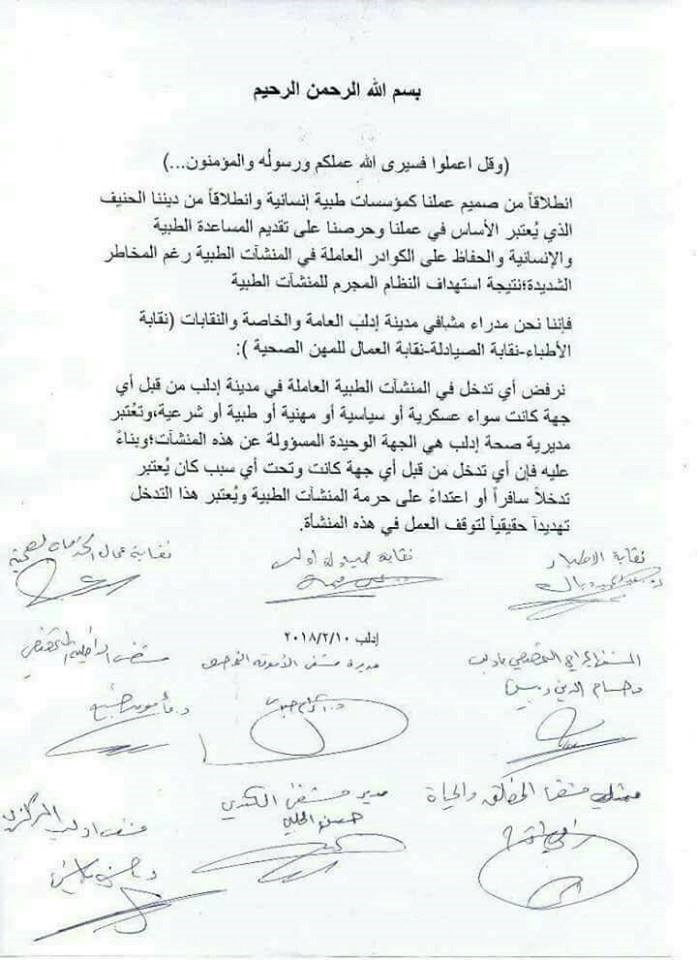 بسم الله الرحمن الرحيم
(وقل اعملوا فسيرى الله عملكم ورسولُه والمؤمنون...)
انطلاقاً من صميم عملنا كمؤسسات طبية إنسانية وانطلاقاً من ديننا الحنيف
الذي يُعتبر الأساس في عملنا وحرصنا على تقديم المساعدة الطبية
والإنسانية والحفاظ على الكوادر العاملة في المنشآت الطبية رغم المخاطر
الشديدة؛نتيجة استهداف النظام المجرم للمنشآت الطبية
فإننا نحن مدراء مشافي مدينة إدلب العامة والخاصة والنقابات (نقابة
الأطباء-نقابة الصيادلة-نقابة العمال للمهن الصحية ):
نرفض أي تدخل في المنشآت الطبية العاملة في مدينة إدلب من قبل أي
جهة كانت سواء عسكرية أو سياسية أو مهنية أو طبية أو شرعية،وتعتبر
مديرية صحة إدلب هي الجهة الوحيدة المسؤولة عن هذه المنشآت؛وبناءً
عليه فإن أي تدخل من قبل أي جهة كانت وتحت أي سبب كان يُعتبر
تدخلاً سافراً أو اعتداءً على حرمة المنشآت الطبية ويُعتبر هذا التدخل
تهديداً حقيقياً لتوقف العمل في هذه المنشأة.
نقابة الاطباء
نقابة صيادلة ادلب
نقابة عمال الخدمات الصحية
إدلب ٢٠١٨/٢/١٠
المشفى الجراحي التخصصي بادلب
د حسام الدين دبيس
مديرة مشفى الأمومة
د. اكرام حبوش
مشفى الداخلية التخصصي
د. مأمون
ممثل مشفى والحياة
مدير مشفى الكندي
حسن الحلبي
مشفى ادلب المركزي